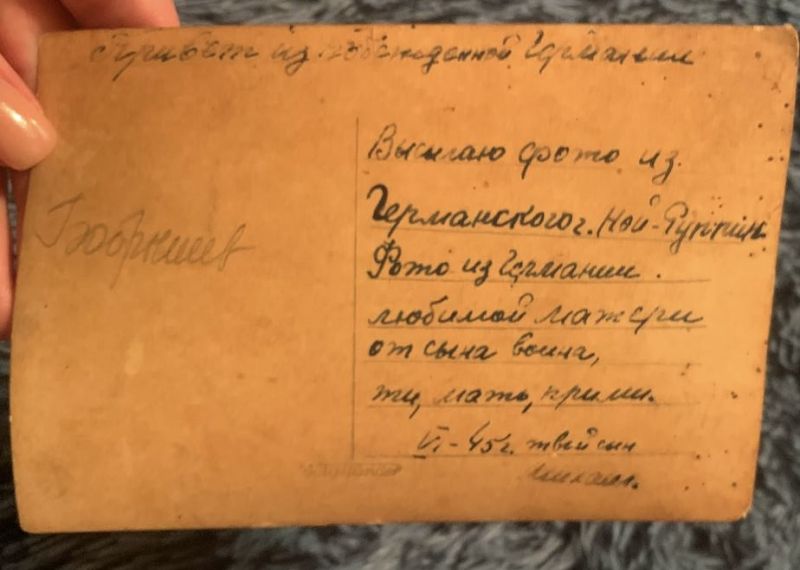 Привет из побежденной Германии
Высилаю фото из
Германского г. Ной-Руппин
Фото из Германии.
любимой матери
от сына воина,
ти, мать, прими.
VI-45г. твой син
Михаил.